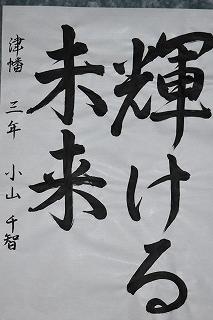 輝ける
未来
津幡 三年 小山 千智